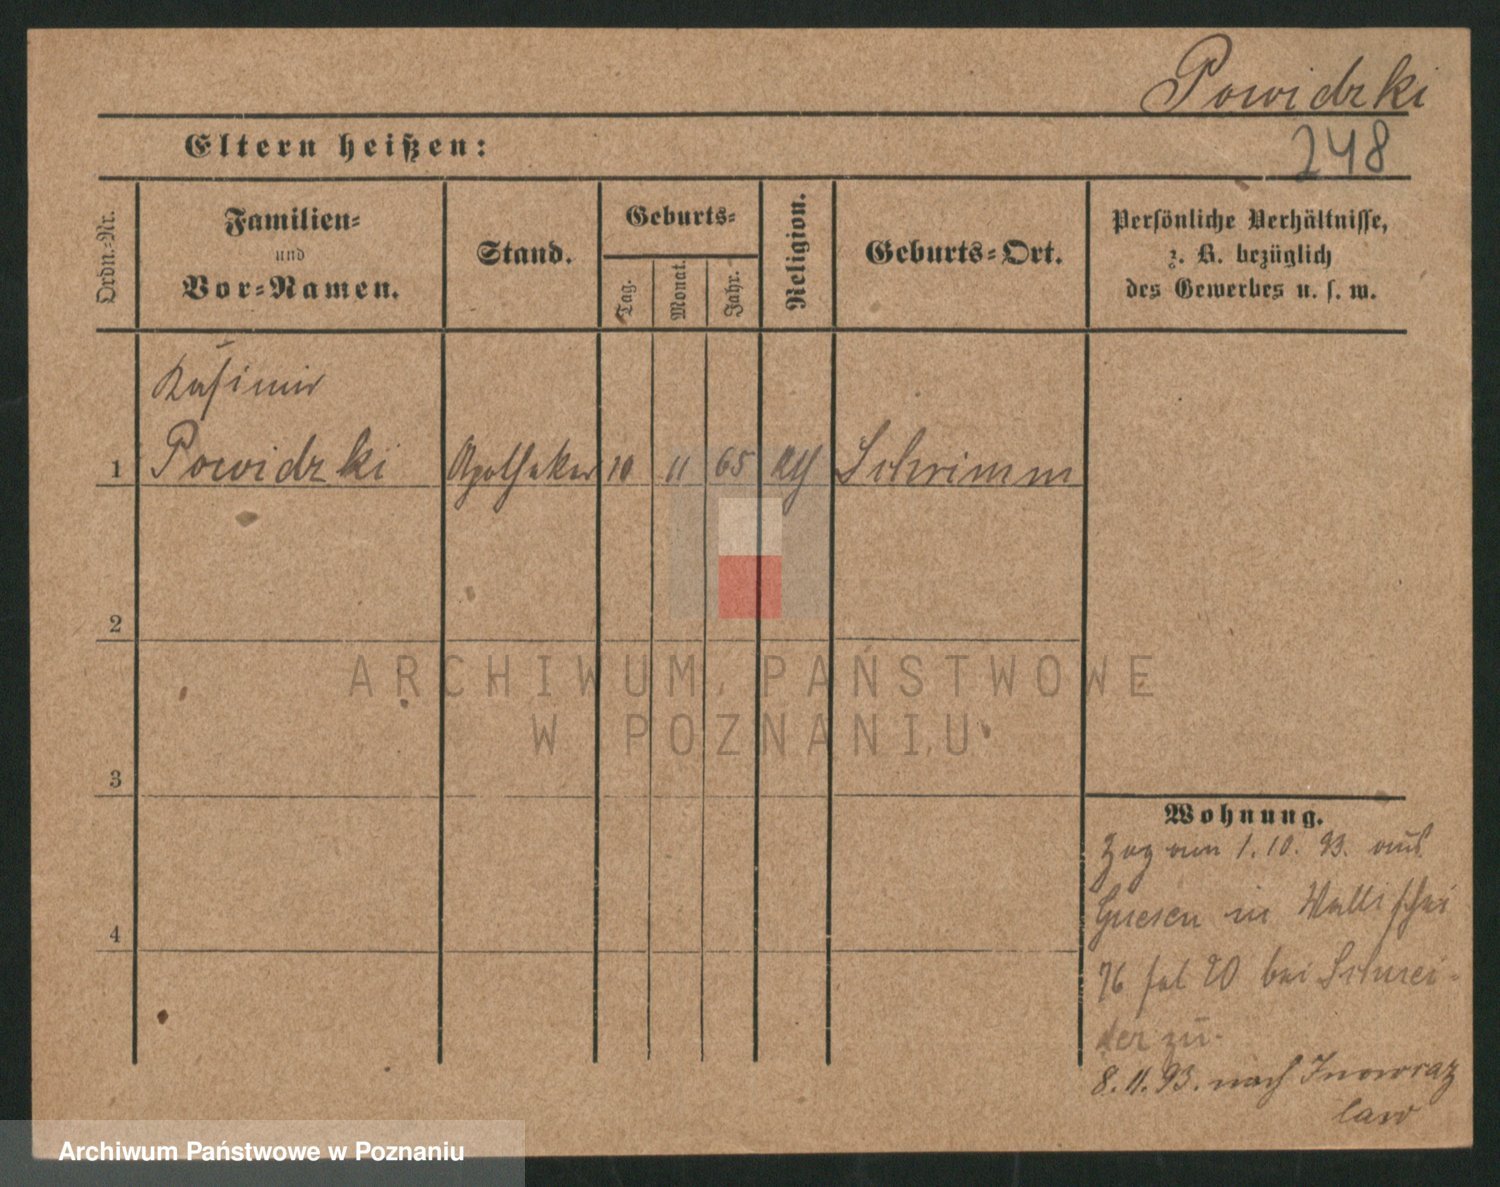 Powidzki
248
Eltern heißen:
Ordn.-Nr.
Familien-
und
Vor-Namen.
Stand.
Geburts-
Tag.
Monat.
Jahr.
Religion.
Geburts-Ort.
Persönliche Verhältnisse,
z. B. bezüglich
des Gewerbes u. s. w.
Kasimir
1 Powidzki Apotheker 10 11 65 kth Schrimm
2
3
4
ARCHIWUM PAŃSTWOWE
W POZNANIU
Wohnung.
Zog am 1.10.93. aus
Gnesen in Wallischei
76 bei Schnei-
der zu.
8.11.93. nach Inowraz
law
Archiwum Państwowe w Poznaniu